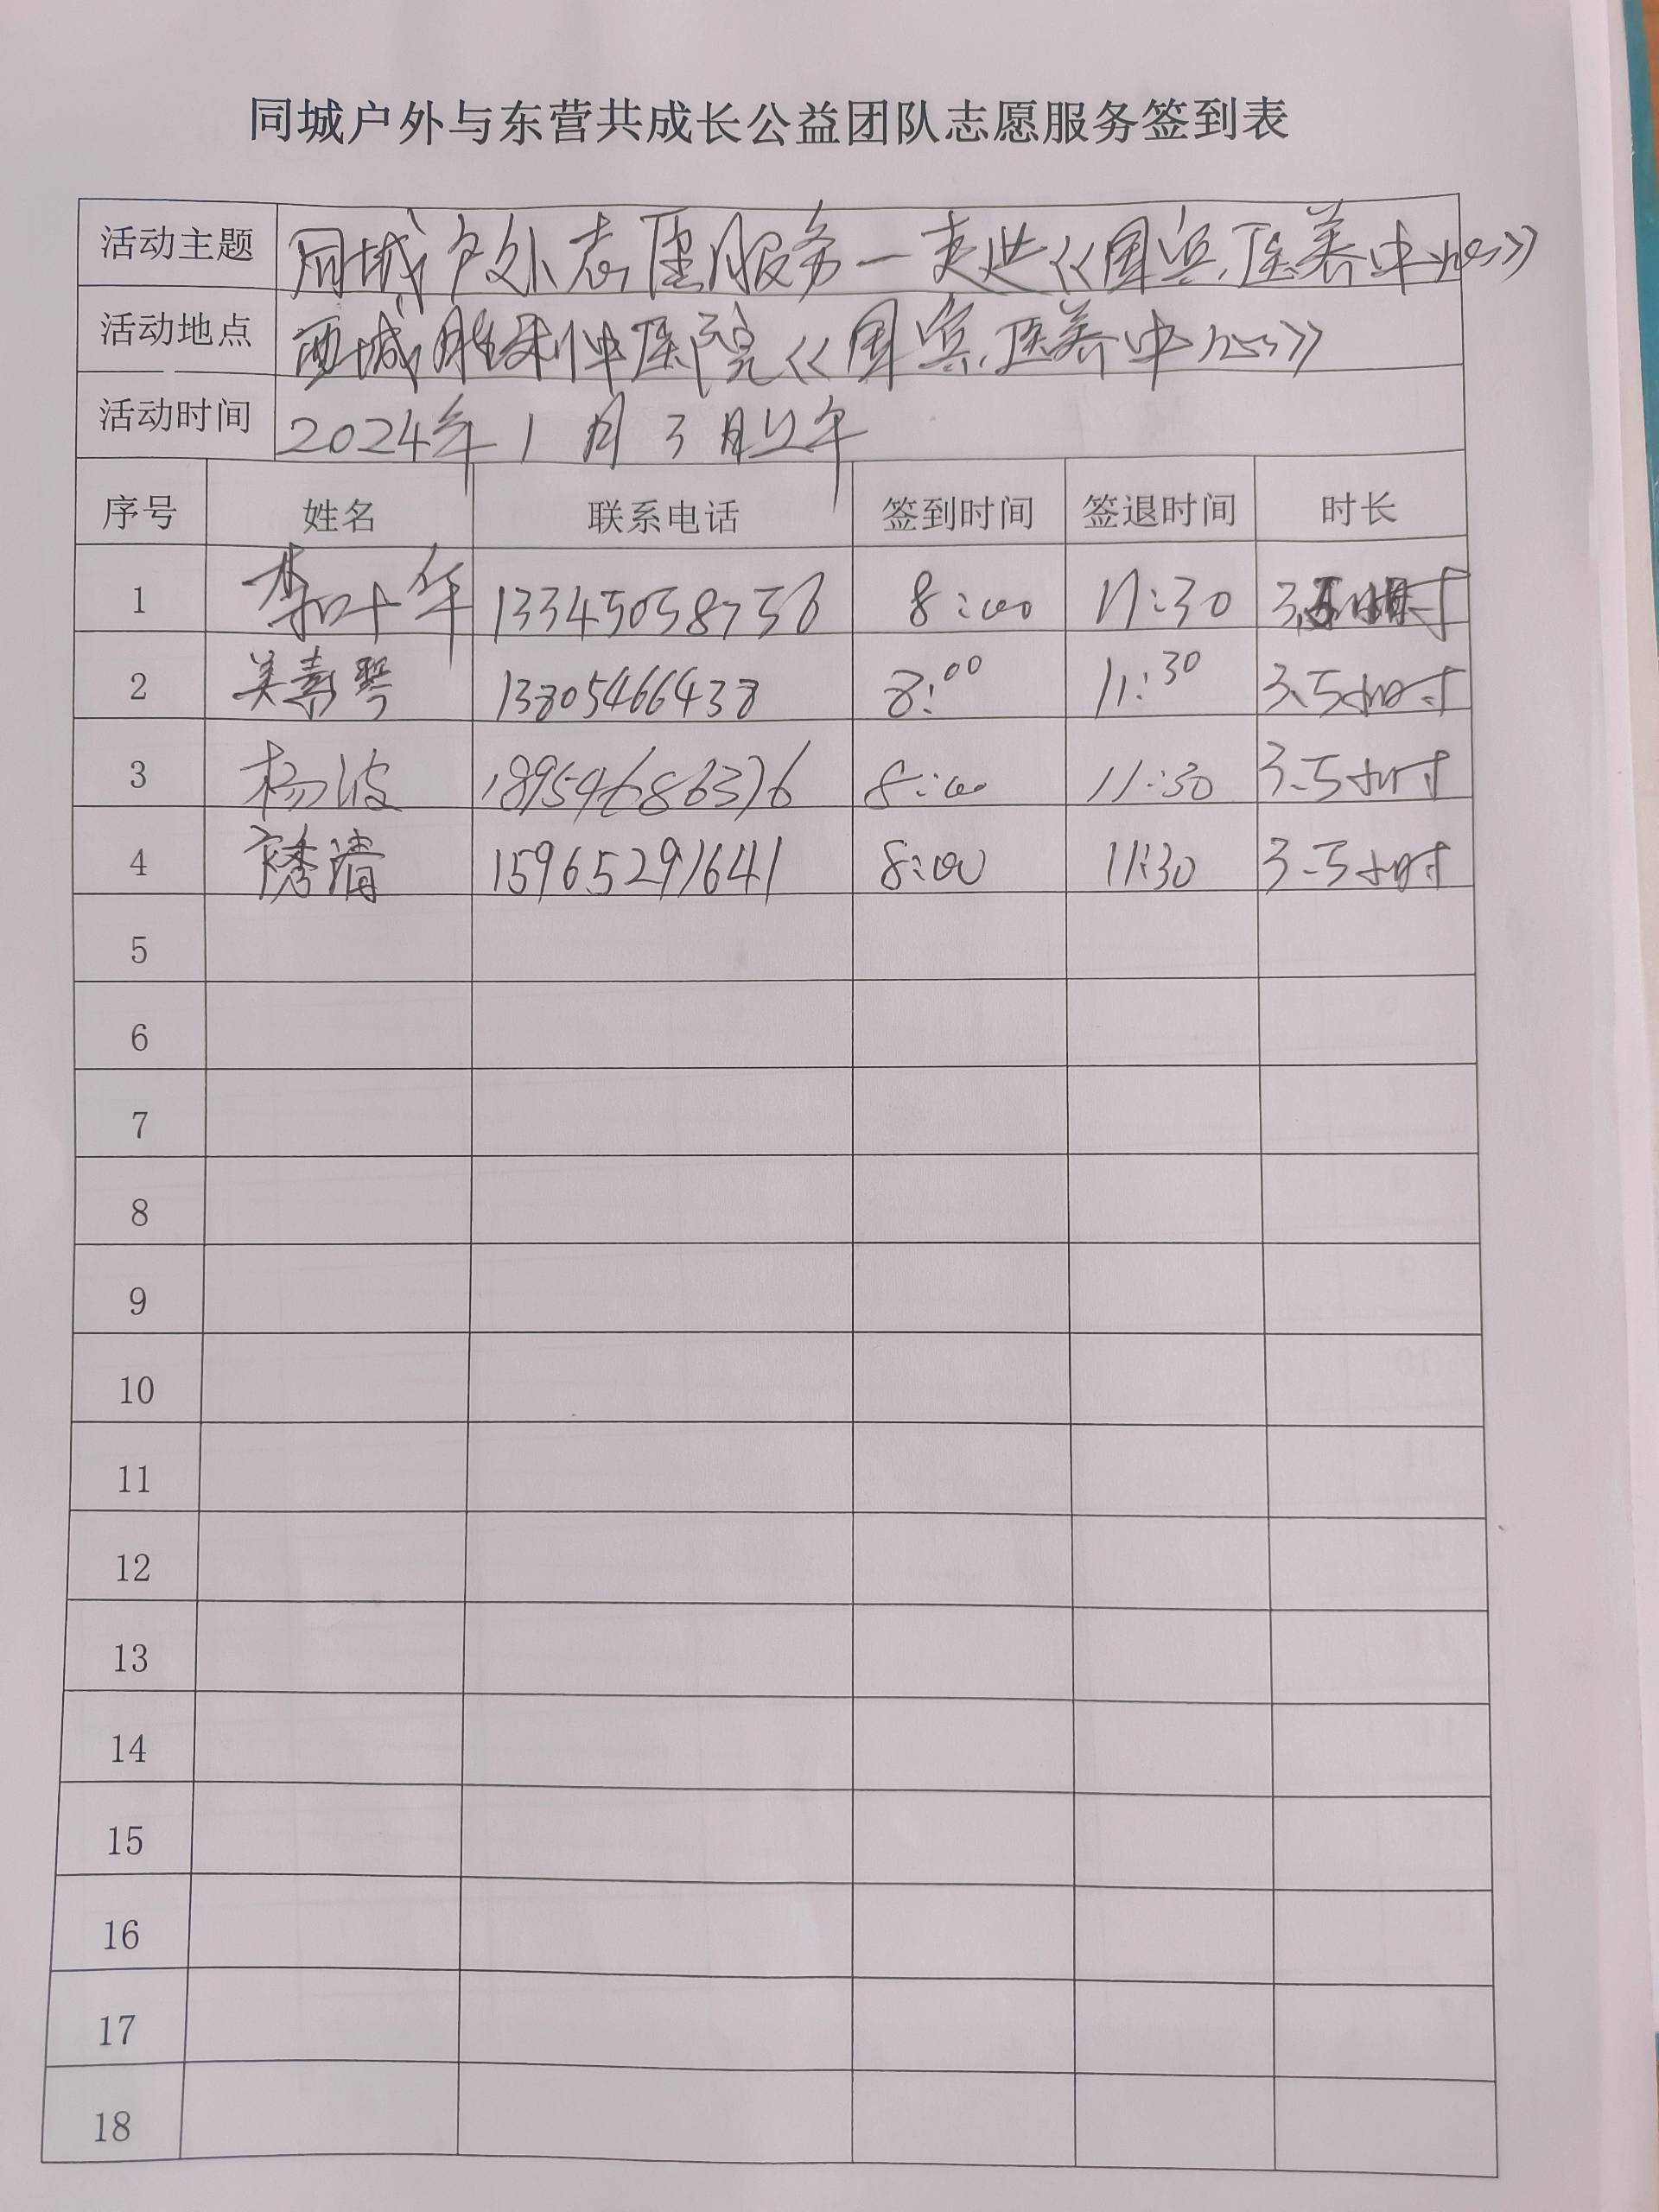 同城户外与东营共成长公益团队志愿服务签到表
活动主题 同城户外志愿服务一走进《国宾医养中心》
活动地点 西城胜利中医院《国宾医养中心》
活动时间 2024年1月3日上午
序号 姓名 联系电话 签到时间 签退时间 时长
1 李叶年 13345058756 8:00 11:30 3.5小时
2 美素琴 13805466438 8:00 11:30 3.5小时
3 杨波 18954686376 8:00 11:30 3.5小时
4 秀清 15965291641 8:00 11:30 3.5小时
5
6
7
8
9
10
11
12
13
14
15
16
17
18